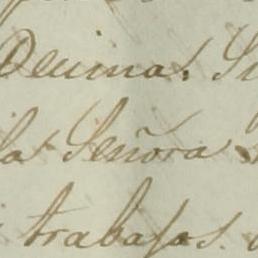 Decima. Si
la Señora
trabajos.